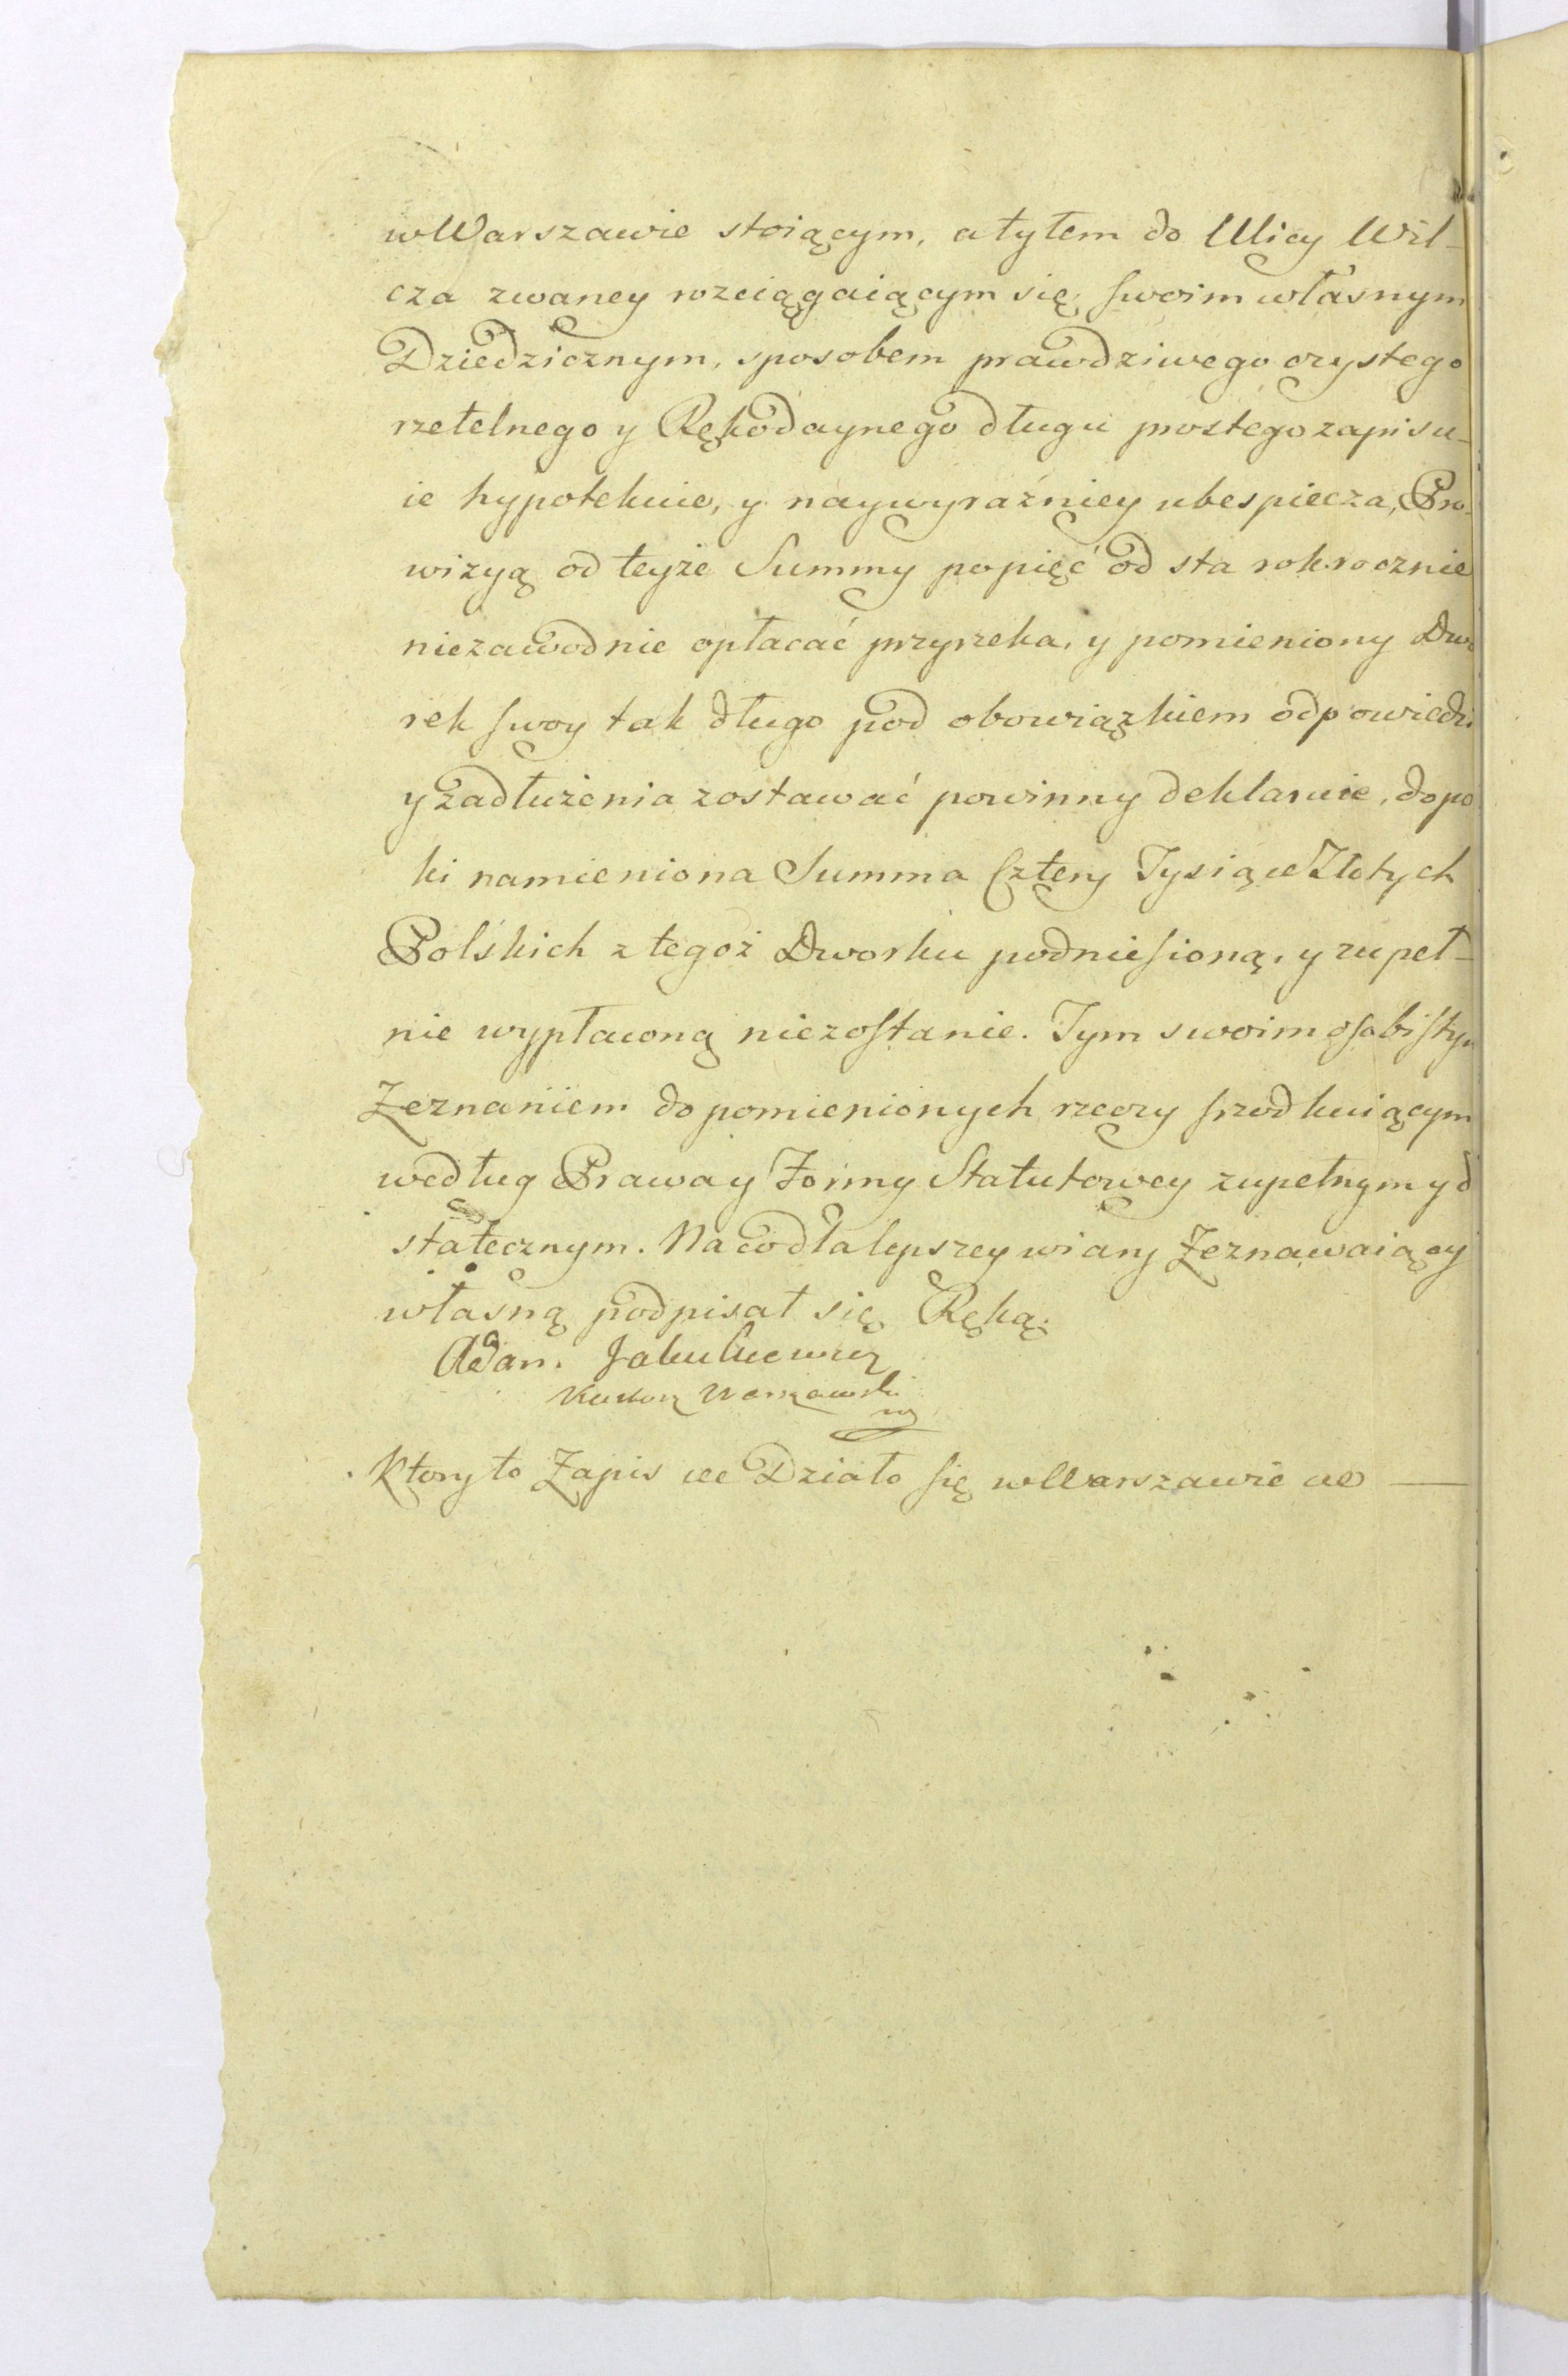 w Warszawie stoiącym, a tyłem do Ulicy Wil-
cza zwaney rozciągaiącym się, swoim własnym
Dziedzicznym, sposobem prawdziwego czystego
rzetelnego y Rękodaynego długu prostego zapisu-
ie hypotekuie, y naywyraźniey ubespiecza, Pro-
wizyą od teyże Summy po pięć od sta rokrocznie
niezawodnie opłacać przyrzeka, y pomieniony Dwo
rek swoy tak długo pod obowiązkiem odpowiedzi
y zadłużenia zostawać powinny deklaruie, dopo
ki namieniona Summa Cztery Tysiące Złotych
Polskich z tegoż Dworku podniesioną, y zupeł-
nie wypłaconą niezostanie. Tym swoim osobistym
Zeznaniem do pomienionych rzeczy srzodkuiącym
według Prawa y Formy Statutowey zupełnym y d
statecznym. Na co dla lepszey wiary Zeznawaiący
własną podpisał się Ręką.
Adam Jakukiewicz
Kustosz Warszawski
Ktory to Zapis etc Działo się w Warszawie etc